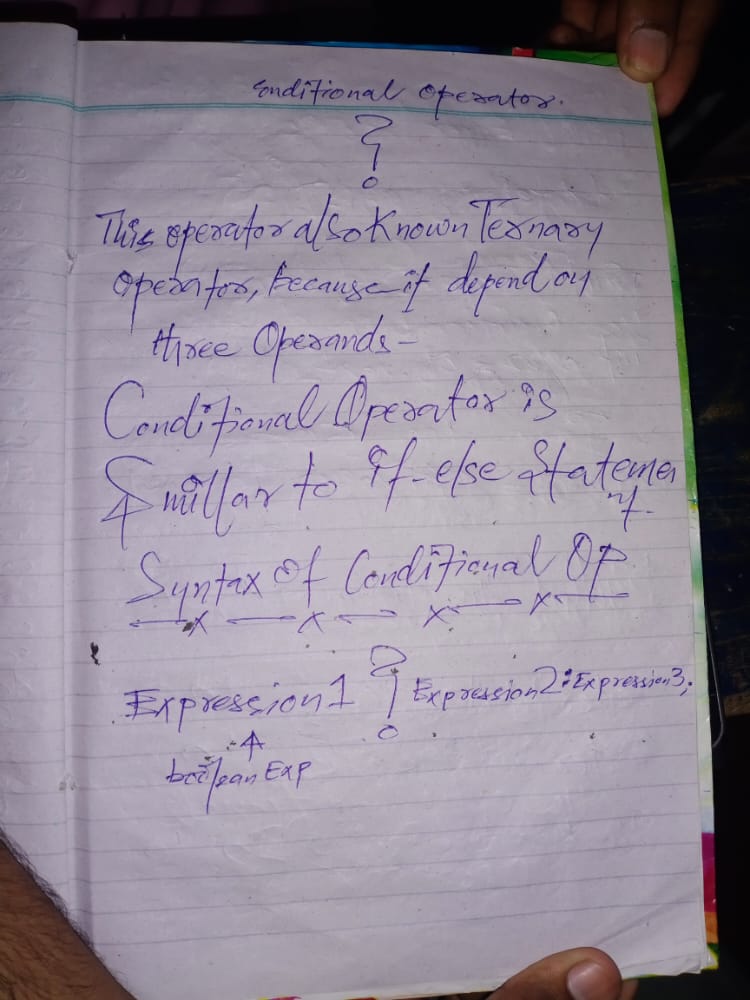 Conditional Operator.
?
This operator also Known Ternary
Operator, because it depend on
three Operands -
Conditional Operator is
Simillar to if-else Statemen
t.
Syntax Of Conditional OP
Expression1 ? Expression2 : Expression3;
boolean Exp